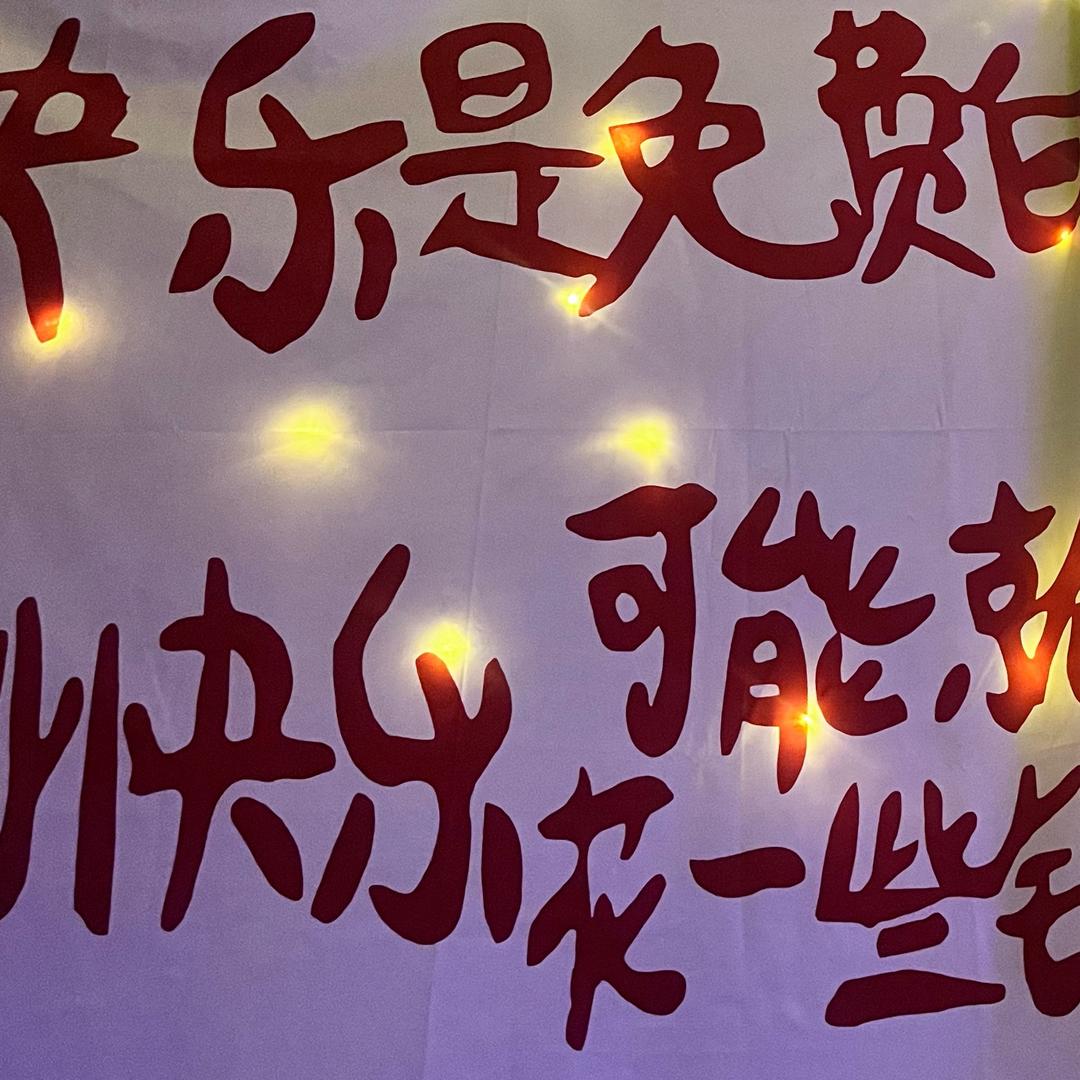 快乐是免费的
可能就
快乐
花一些